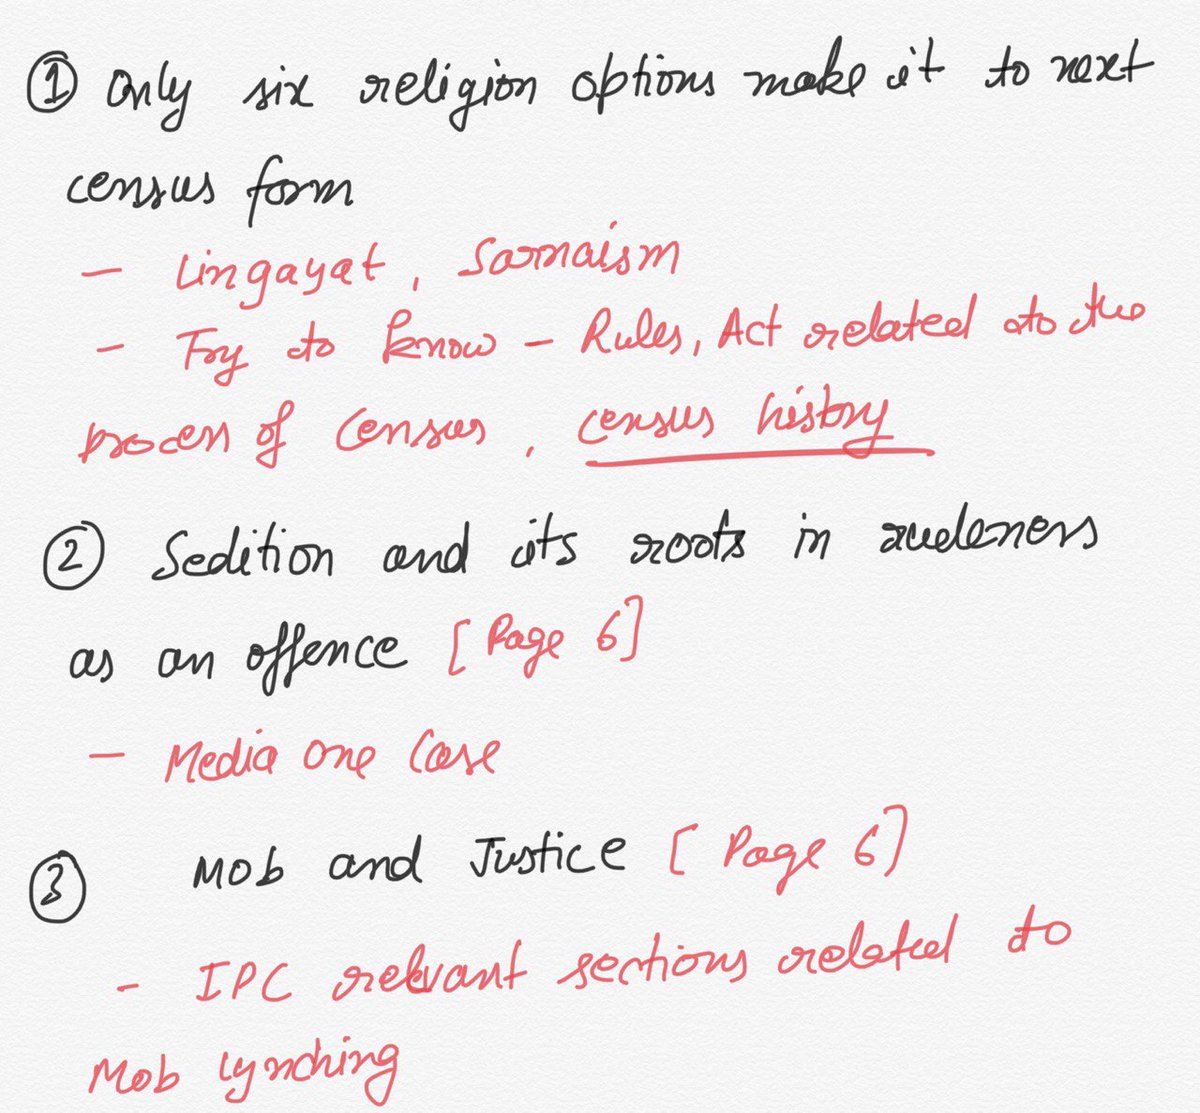 ① Only six religion options make it to next
census form
- Lingayat, Sarnaism
- Try to know - Rules, Act related to the
process of census, census history
② Sedition and its roots in rudeness
as an offence [Page 6]
- Media One Case
③ Mob and Justice [Page 6]
- IPC relevant sections related to
Mob lynching